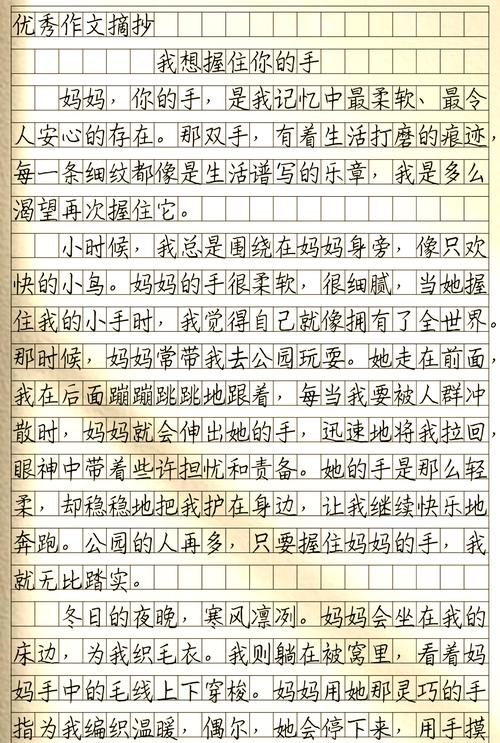 优秀作文摘抄
我想握住你的手
妈妈，你的手，是我记忆中最柔软、最令
人安心的存在。那双手，有着生活打磨的痕迹，
每一条细纹都像是生活谱写的乐章，我是多么
渴望再次握住它。
小时候，我总是围绕在妈妈身旁，像只欢
快的小鸟。妈妈的手很柔软，很细腻，当她握
住我的小手时，我觉得自己就像拥有了全世界。
那时候，妈妈常带我去公园玩耍。她走在前面，
我在后面蹦蹦跳跳地跟着，每当我要被人群冲
散时，妈妈就会伸出她的手，迅速地将我拉回，
眼神中带着些许担忧和责备。她的手是那么轻
柔，却稳稳地把我护在身边，让我继续快乐地
奔跑。公园的人再多，只要握住妈妈的手，我
就无比踏实。
冬日的夜晚，寒风凛冽。妈妈会坐在我的
床边，为我织毛衣。我则躺在被窝里，看着妈
妈手中的毛线上下穿梭。妈妈用她那灵巧的手
指为我编织温暖，偶尔，她会停下来，用手摸